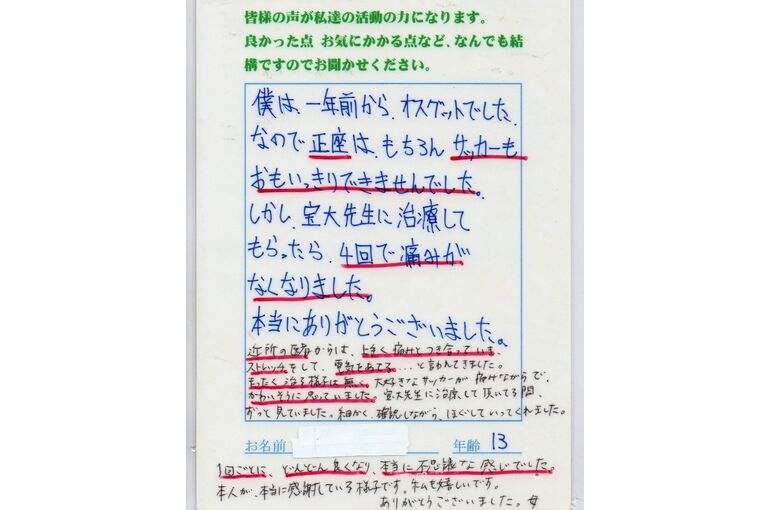 皆様の声が私達の活動の力になります。
良かった点 お気にかかる点など、なんでも結
構ですのでお聞かせください。
僕は、一年前から、オスグットでした。
なので正座は、もちろんサッカーも
おもいっきりできませんでした。
しかし、宝大先生に治療して
もらったら、4回で痛みが
なくなりました。
本当にありがとうございました。
近所の医者からは、上手く痛みとつき合っていき、
ストレッチをして、電気をあてる...と言われてきました。
まったく治る様子は無く、大好きなサッカーが痛みながらで、
かわいそうに思っていました。宝大先生に治療して頂いてる間、
ずっと見ていました。細かく、確認しながら、ほぐしていってくれました。
お名前 年齢 13
1回ごとに、どんどん良くなり、本当に不思議な感じでした。
本人が、本当に感謝している様子です。私も嬉しいです。
ありがとうございました。母